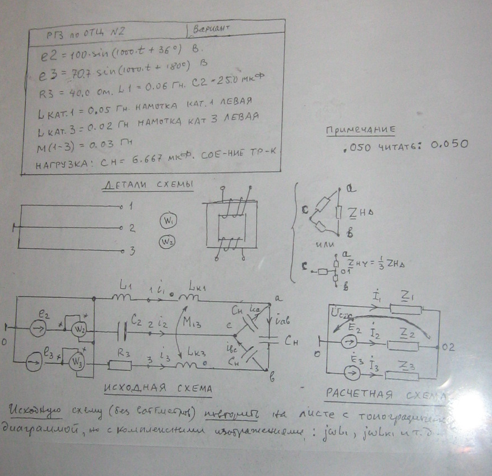 РГЗ по ОТЦ N2 Вариант
e2 = 100·sin(1000·t + 36°) В.
e3 = 70.7 sin(1000·t + 180°) В
R3 = 40.0 ом. L1 = 0.06 Гн. C2 = 25.0 мкФ
L кат.1 = 0.05 Гн намотка кат.1 левая
L кат.3 = 0.02 Гн намотка кат 3 левая
M(1-3) = 0.03 Гн
Нагрузка: Cн = 6.667 мкФ. Сое-ние тр-к
Примечание
.050 читать: 0.050
Детали схемы
1
2
3
W1
W2
a
c
ZHΔ
b
или
a
c
ZHY = 1/3 ZHΔ
b
0
L1 1 i1 Lк1 a
e2 W2 C2 2 i2 M13 c Cн
e3 W3 R3 3 i3 Lк3 Cн b
0
I1 Z1
E2 I2 Z2
E3 I3 Z3
0 02
Исходная схема
Расчетная схема
Исходную схему (без ваттметров) повторить на листе с
диаграммой, с комплексными изображениями: jωL1, jωLк1 и т.д.